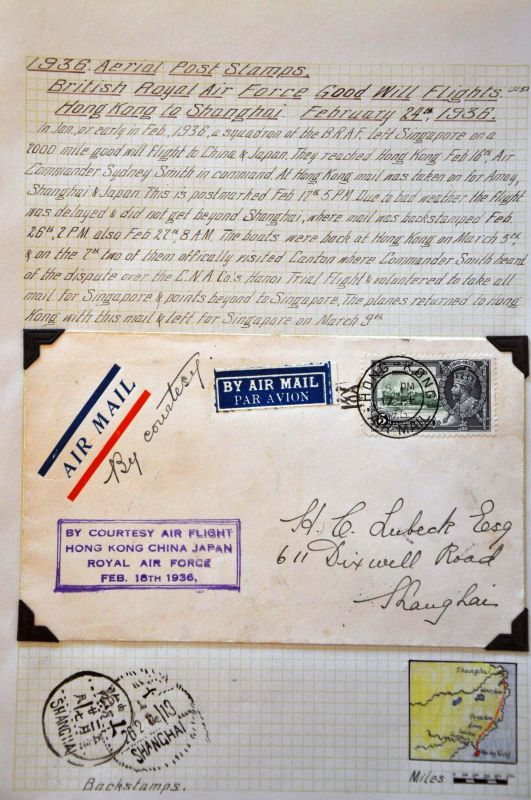 1936. Aerial Post Stamps.
British Royal Air Force Good Will Flights
Hong Kong to Shanghai. February 24th, 1936.
In Jan, or early in Feb, 1936, a squadron of the B.R.A.F. left Singapore on a
7000 mile good will flight to China & Japan. They reached Hong Kong Feb 16th, Air
Commander Sydney Smith in command. At Hong Kong mail was taken on for Amoy,
Shanghai & Japan. This is postmarked Feb 17th 5 P.M. Due to bad weather the flight
was delayed & did not get beyond Shanghai, where mail was backstamped Feb
26th, 7 P.M. also Feb 27th, 8 A.M. The boats were back at Hong Kong on March 5th,
& on the 7th two of them offically visited Canton where Commander Smith heard
of the dispute over the C.N.A.Co.'s Hanoi Trial Flight & volunteered to take all
mail for Singapore & points beyond to Singapore. The planes returned to Hong
Kong with this mail & left for Singapore on March 9th
AIR MAIL
By courtesy
BY AIR MAIL
PAR AVION
HONG KONG
PM
BY COURTESY AIR FLIGHT
HONG KONG CHINA JAPAN
ROYAL AIR FORCE
FEB. 18TH 1936.
H. C. Lubeck Esq
611 Dixwell Road
Shanghai
SHANGHAI
SHANGHAI
Backstamps.
Shanghai
Hong Kong
Miles